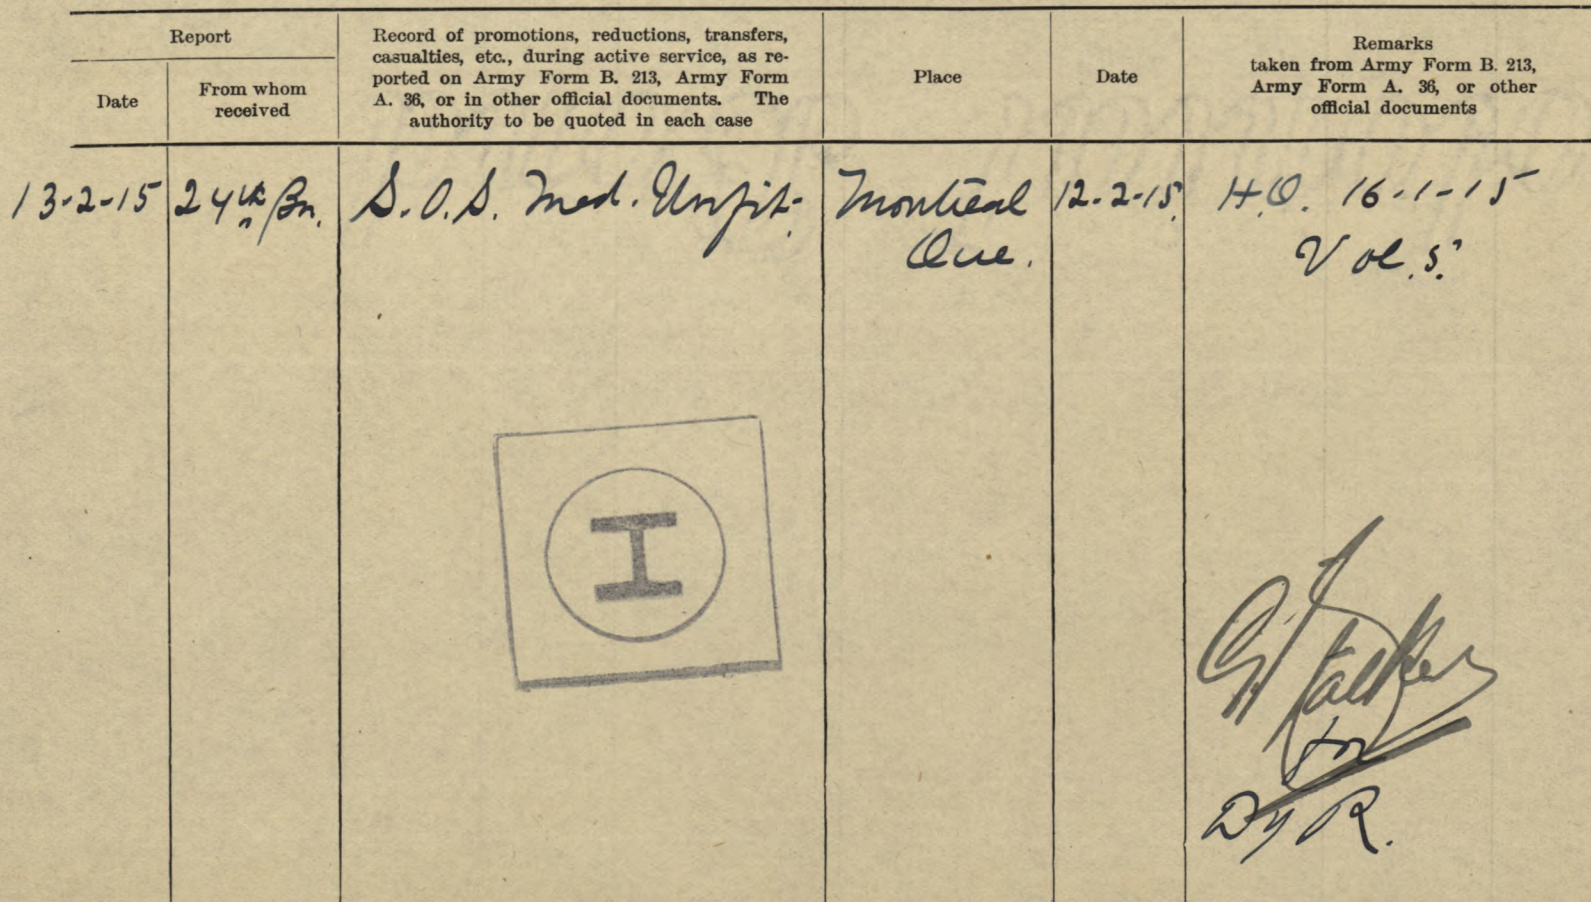 Report
Date
From whom
received
Record of promotions, reductions, transfers,
casualties, etc., during active service, as re-
ported on Army Form B. 213, Army Form
A. 36, or in other official documents. The
authority to be quoted in each case
Place
Date
Remarks
taken from Army Form B. 213,
Army Form A. 36, or other
official documents
13-2-15
24th Bn.
S.O.S. Med. Unfit.
Montreal
Que.
12-2-15.
H.Q. 16-1-15
Vol. 5.
I
for
D of R.